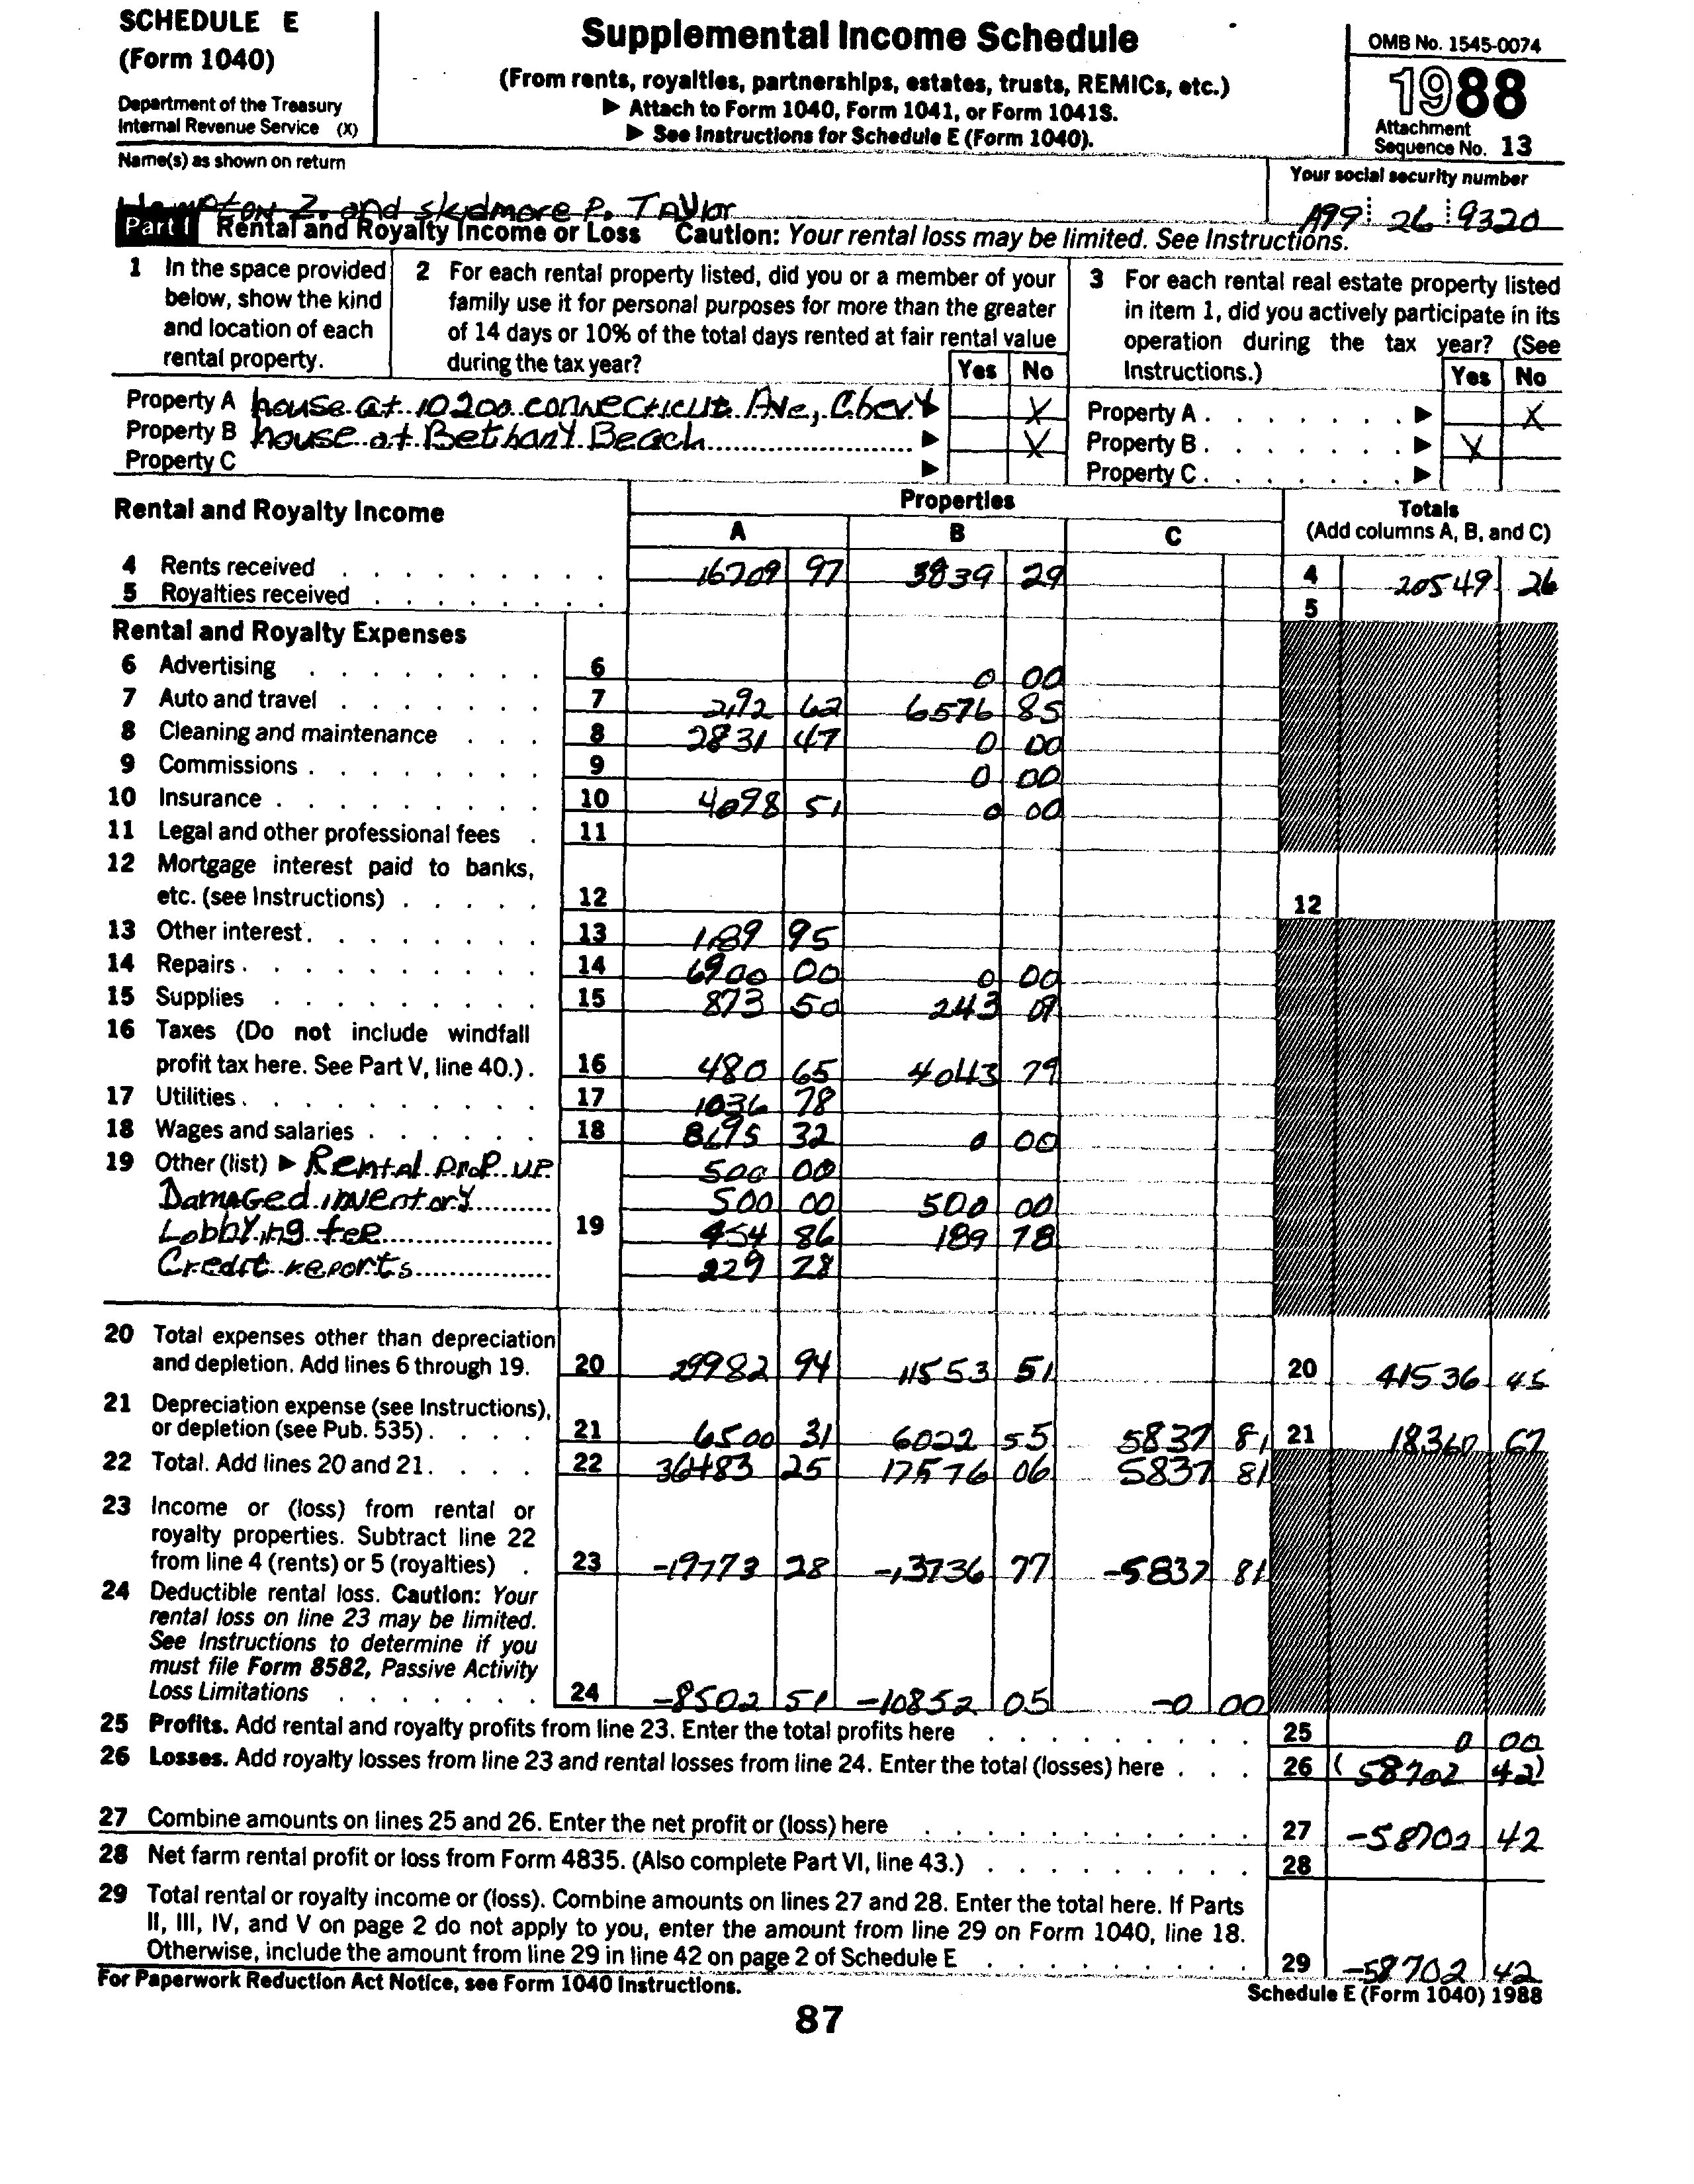 SCHEDULE E
(Form 1040)
Department of the Treasury
Internal Revenue Service (X)
Supplemental Income Schedule
(From rents, royalties, partnerships, estates, trusts, REMICs, etc.)
▶ Attach to Form 1040, Form 1041, or Form 1041S.
▶ See Instructions for Schedule E (Form 1040).
OMB No. 1545-0074
1988
Attachment
Sequence No. 13
Name(s) as shown on return
Your social security number
Hampton Z. and Skydmore P. Taylor
A99 26 9320
Part I Rental and Royalty Income or Loss Caution: Your rental loss may be limited. See Instructions.
1 In the space provided below, show the kind and location of each rental property.
2 For each rental property listed, did you or a member of your family use it for personal purposes for more than the greater of 14 days or 10% of the total days rented at fair rental value during the tax year?
Yes No
3 For each rental real estate property listed in item 1, did you actively participate in its operation during the tax year? (See Instructions.)
Yes No
Property A house at 10200 connecticut Ave, Chevy ▶ X
Property A . . . . . . . ▶ X
Property B house at Bethany Beach ▶ X
Property B . . . . . . . ▶ X
Property C ▶
Property C . . . . . . . ▶
Rental and Royalty Income
Properties
A B C
Totals
(Add columns A, B, and C)
4 Rents received 16709 97 3839 29 4 20549 26
5 Royalties received 5
Rental and Royalty Expenses
6 Advertising 6 0 00
7 Auto and travel 7 2192 62 6576 85
8 Cleaning and maintenance 8 2831 47 0 00
9 Commissions 9 0 00
10 Insurance 10 4098 51 0 00
11 Legal and other professional fees 11
12 Mortgage interest paid to banks,
etc. (see Instructions) 12 12
13 Other interest 13 1189 95
14 Repairs 14 6900 00 0 00
15 Supplies 15 873 50 243 09
16 Taxes (Do not include windfall
profit tax here. See Part V, line 40.) 16 480 65 4043 79
17 Utilities 17 1036 78
18 Wages and salaries 18 8695 32 0 00
19 Other (list) ▶ Rental prop up 500 00
Damaged inventory 500 00 500 00
Lobbying fee 19 454 86 189 78
Credit reports 229 28
20 Total expenses other than depreciation
and depletion. Add lines 6 through 19. 20 29982 94 11553 51 20 41536 45
21 Depreciation expense (see Instructions),
or depletion (see Pub. 535) 21 6500 31 6022 55 5837 81 21 18360 67
22 Total. Add lines 20 and 21 22 36483 25 17576 06 5837 81
23 Income or (loss) from rental or
royalty properties. Subtract line 22
from line 4 (rents) or 5 (royalties) 23 -19773 28 -13736 77 -5837 81
24 Deductible rental loss. Caution: Your
rental loss on line 23 may be limited.
See Instructions to determine if you
must file Form 8582, Passive Activity
Loss Limitations 24 -8502 51 -10852 05 -0 00
25 Profits. Add rental and royalty profits from line 23. Enter the total profits here 25 0 00
26 Losses. Add royalty losses from line 23 and rental losses from line 24. Enter the total (losses) here 26 ( 58702 42)
27 Combine amounts on lines 25 and 26. Enter the net profit or (loss) here 27 -58702 42
28 Net farm rental profit or loss from Form 4835. (Also complete Part VI, line 43.) 28
29 Total rental or royalty income or (loss). Combine amounts on lines 27 and 28. Enter the total here. If Parts
II, III, IV, and V on page 2 do not apply to you, enter the amount from line 29 on Form 1040, line 18.
Otherwise, include the amount from line 29 in line 42 on page 2 of Schedule E 29 -58702 42
For Paperwork Reduction Act Notice, see Form 1040 Instructions.
Schedule E (Form 1040) 1988
87